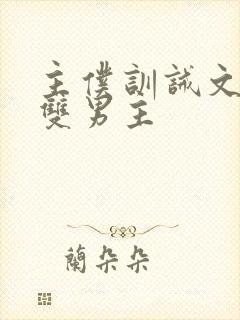 主僕訓誡文
雙男主
蘭朵朵